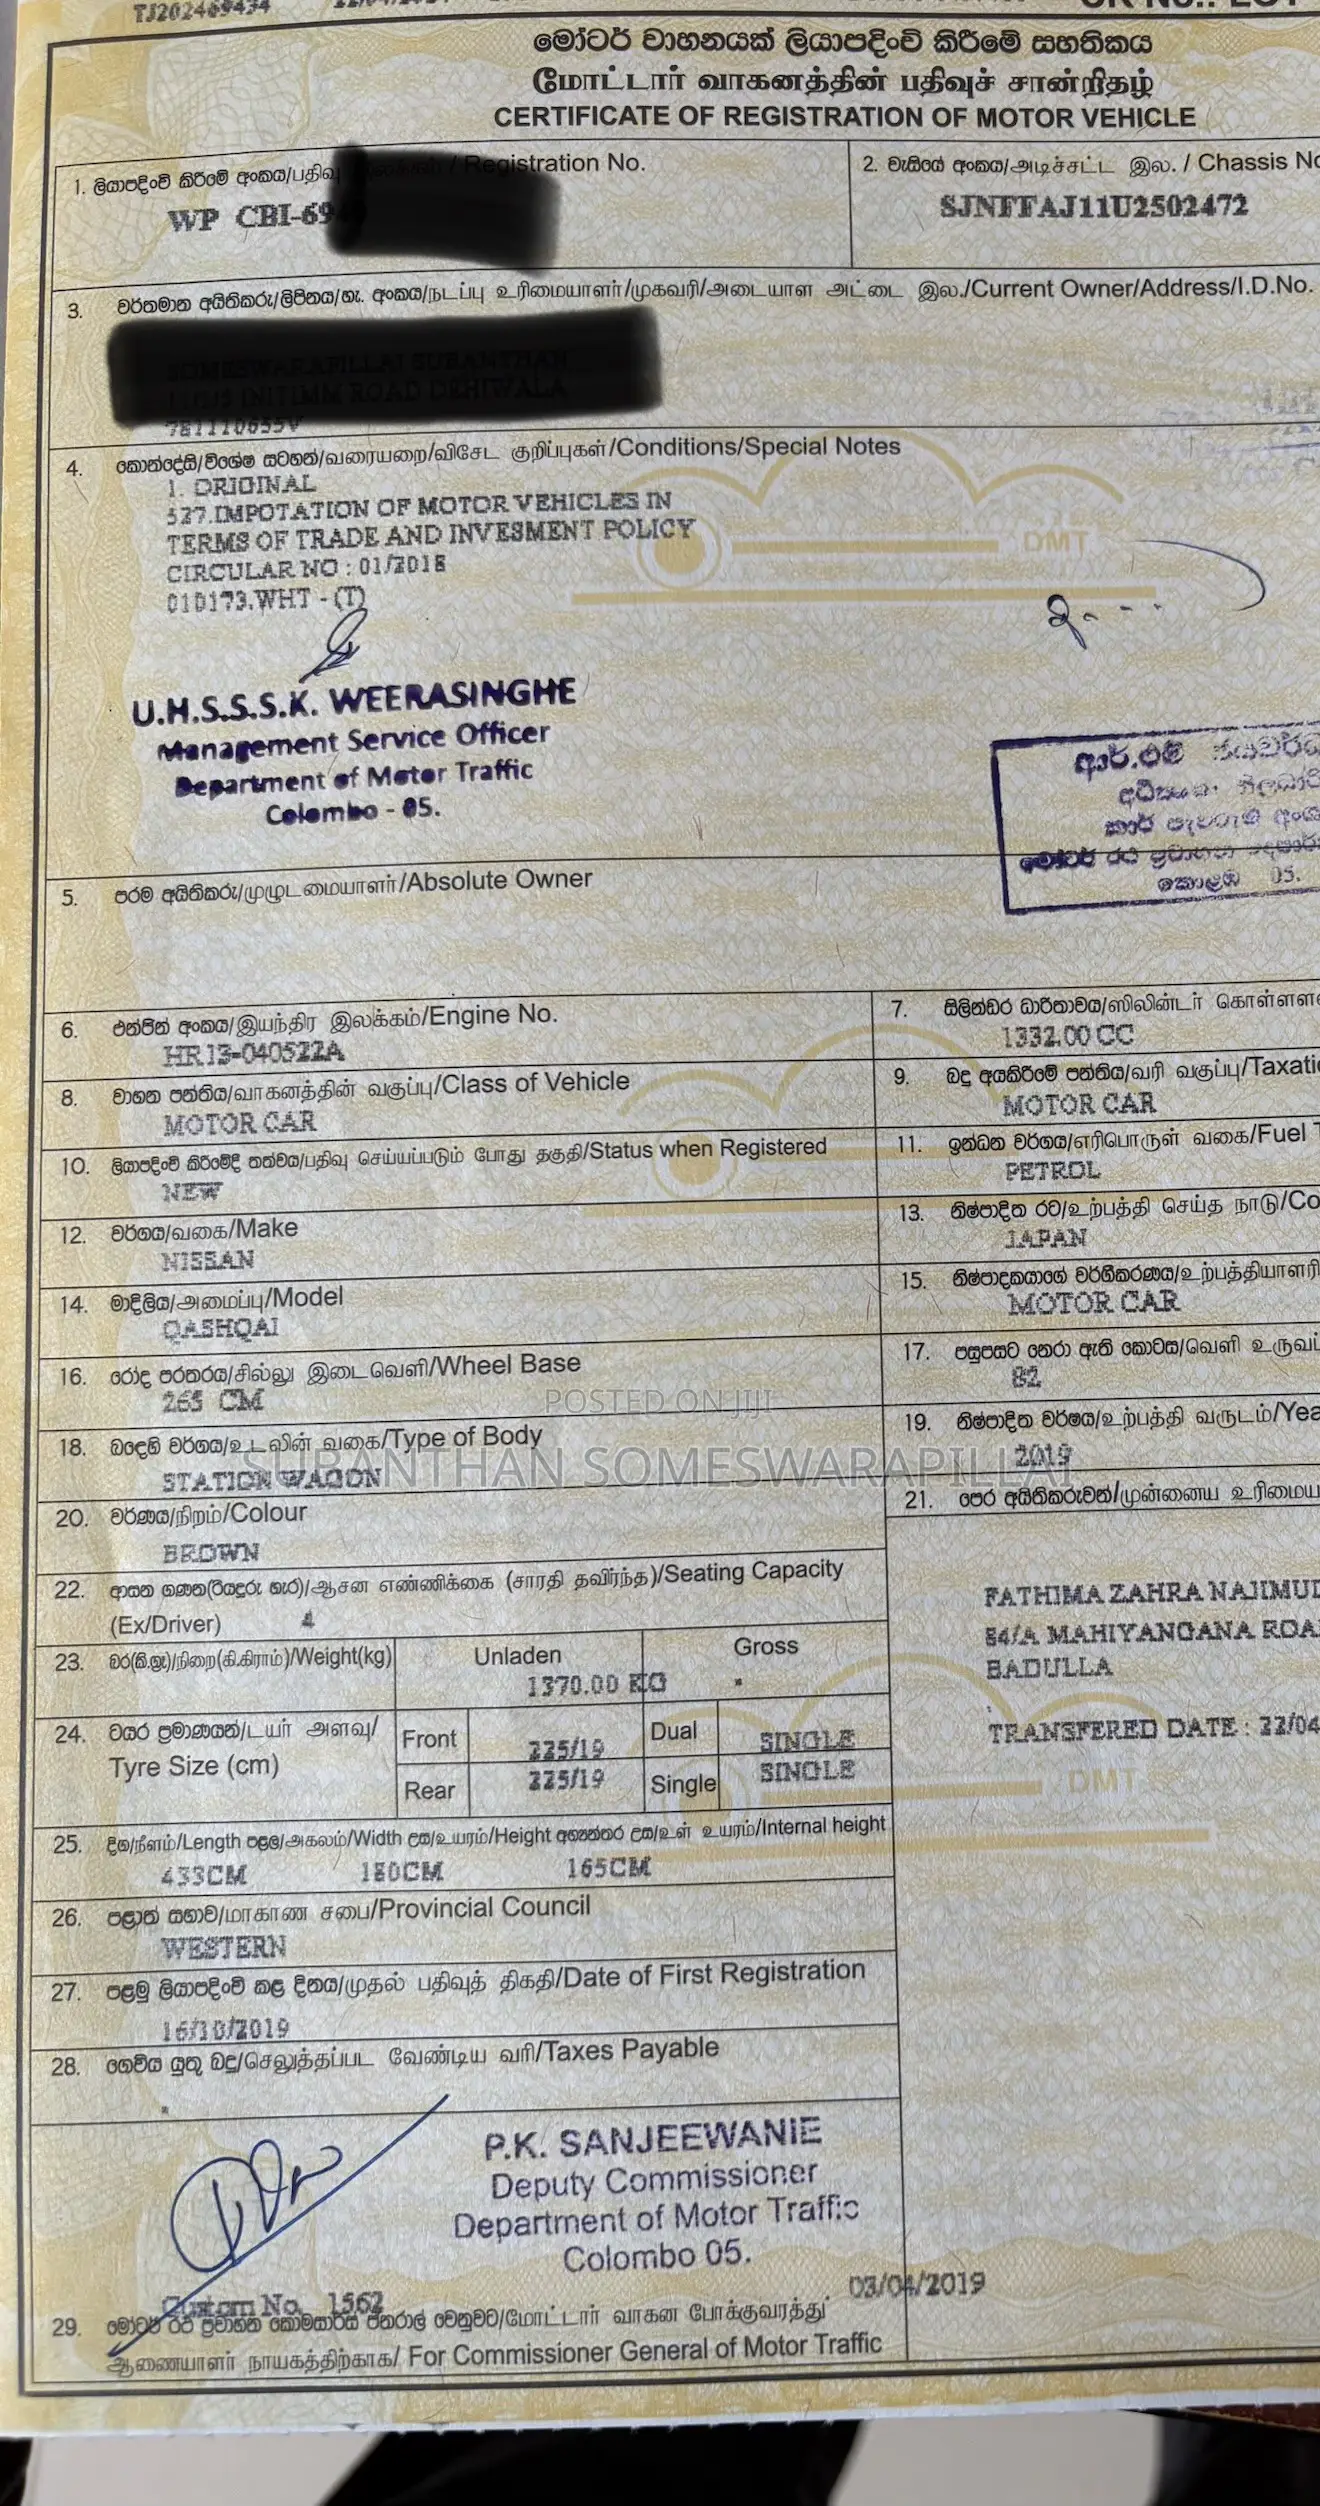 TJ202469434
මෝටර් වාහනයක් ලියාපදිංචි කිරීමේ සහතිකය
மோட்டார் வாகனத்தின் பதிவுச் சான்றிதழ்
CERTIFICATE OF REGISTRATION OF MOTOR VEHICLE
1. ලියාපදිංචි කිරීමේ අංකය/பதிவு / Registration No.
WP CBI-69
2. චැසියේ අංකය/அடிச்சட்ட இல. / Chassis No
SJNFFAJ11U2502472
3. වර්තමාන අයිතිකරු/ලිපිනය/හැ. අංකය/நடப்பு உரிமையாளர்/முகவரி/அடையாள அட்டை இல./Current Owner/Address/I.D.No.
4. කොන්දේසි/විශේෂ සටහන්/வரையறை/விசேட குறிப்புகள்/Conditions/Special Notes
1. ORIGINAL
527.IMPOTATION OF MOTOR VEHICLES IN
TERMS OF TRADE AND INVESMENT POLICY
CIRCULAR NO : 01/2018
010173.WHT - (T)
DMT
U.H.S.S.S.K. WEERASINGHE
Management Service Officer
Department of Motor Traffic
Colombo - 05.
කොළඹ 05.
5. පරම අයිතිකරු/முழுடமையாளர்/Absolute Owner
6. එන්ජින් අංකය/இயந்திர இலக்கம்/Engine No.
HR13-040522A
7. සිලින්ඩර ධාරිතාවය/ஸிலின்டர்
1332.00 CC
8. වාහන පන්තිය/வாகனத்தின் வகுப்பு/Class of Vehicle
MOTOR CAR
9. බදු අයකිරීමේ පන්තිය/வரி வகுப்பு/Taxati
MOTOR CAR
10. ලියාපදිංචි කිරීමේදී තත්වය/பதிவு செய்யப்படும் போது தகுதி/Status when Registered
NEW
11. ඉන්ධන වර්ගය/எரிபொருள் வகை/Fuel T
PETROL
12. වර්ගය/வகை/Make
NISSAN
13. නිෂ්පාදිත රට/உற்பத்தி செய்த நாடு/Co
JAPAN
14. මාදිලිය/அமைப்பு/Model
QASHQAI
15. නිෂ්පාදකයාගේ වර්ගීකරණය/உற்பத்தியாளரி
MOTOR CAR
16. රෝද පරතරය/சில்லு இடைவெளி/Wheel Base
265 CM
17. පසුපසට නෙරා ඇති කොටස/வெளி உருவப்
82
POSTED ON JIJI
18. බඳෙහි වර්ගය/உடலின் வகை/Type of Body
STATION WAGON
19. නිෂ්පාදිත වර්ෂය/உற்பத்தி வருடம்/Yea
2019
SUBANTHAN SOMESWARAPILLAI
20. වර්ණය/நிறம்/Colour
BROWN
21. පෙර අයිතිකරුවන්/முன்னைய உரிமைய
FATHIMA ZAHRA NAJIMUD
84/A MAHIYANGANA ROA
BADULLA
TRANSFERED DATE : 22/04
22. ආසන ගණන(රියදුරු හැර)/ஆசன எண்ணிக்கை (சாரதி தவிர்ந்த)/Seating Capacity
(Ex/Driver) 4
23. බර(කි.ග්‍රෑ)/நிறை(கி.கிராம்)/Weight(kg) Unladen Gross
1370.00 KG
24. ටයර ප්‍රමාණයන්/டயர் அளவு/
Tyre Size (cm)
Front 225/19 Dual SINGLE
Rear 225/19 Single SINGLE
DMT
25. දිග/நீளம்/Length පළල/அகலம்/Width උස/உயரம்/Height අභ්‍යන්තර උස/உள் உயரம்/Internal height
433CM 180CM 165CM
26. පළාත් සභාව/மாகாண சபை/Provincial Council
WESTERN
27. පළමු ලියාපදිංචි කළ දිනය/முதல் பதிவுத் திகதி/Date of First Registration
16/10/2019
28. ගෙවිය යුතු බදු/செலுத்தப்பட வேண்டிய வரி/Taxes Payable
P.K. SANJEEWANIE
Deputy Commissioner
Department of Motor Traffic
Colombo 05.
Custom No. 1562 03/04/2019
29. මෝටර් රථ ප්‍රවාහන කොමසාරිස් ජනරාල් වෙනුවට/மோட்டார் வாகன போக்குவரத்து
ஆணையாளர் நாயகத்திற்காக/ For Commissioner General of Motor Traffic